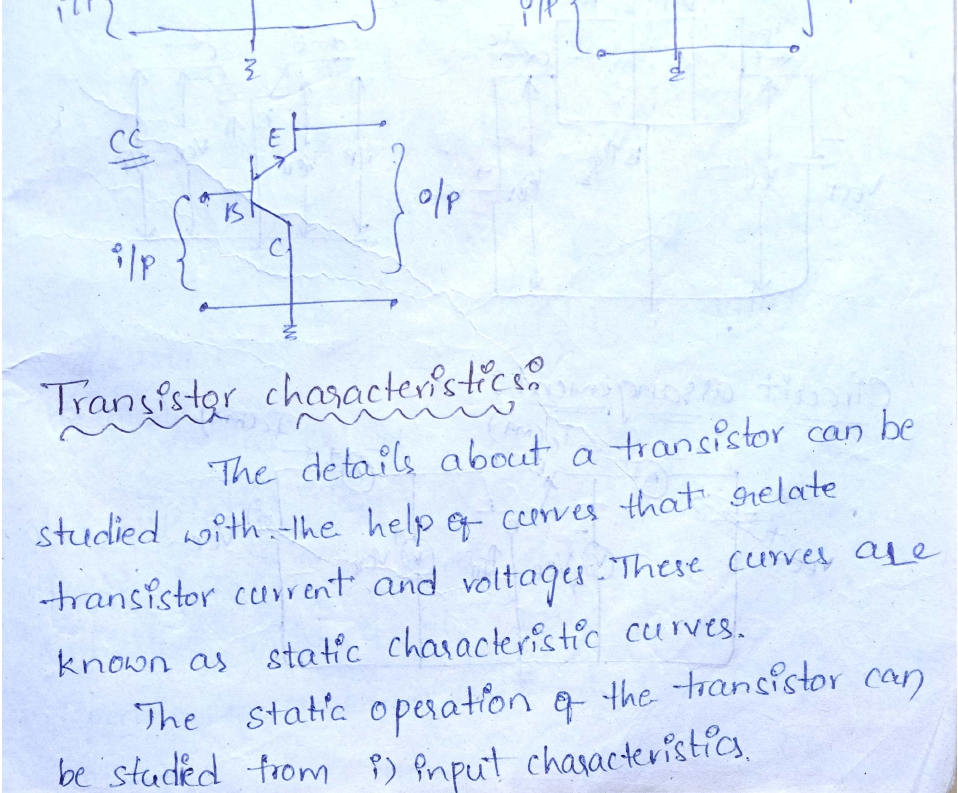 i/p
i/p
CC
E
B
o/p
i/p
C
Transistor characteristics:
The details about a transistor can be
studied with the help of curves that relate
transistor current and voltages. These curves are
known as static characteristic curves.
The static operation of the transistor can
be studied from i) input characteristics.